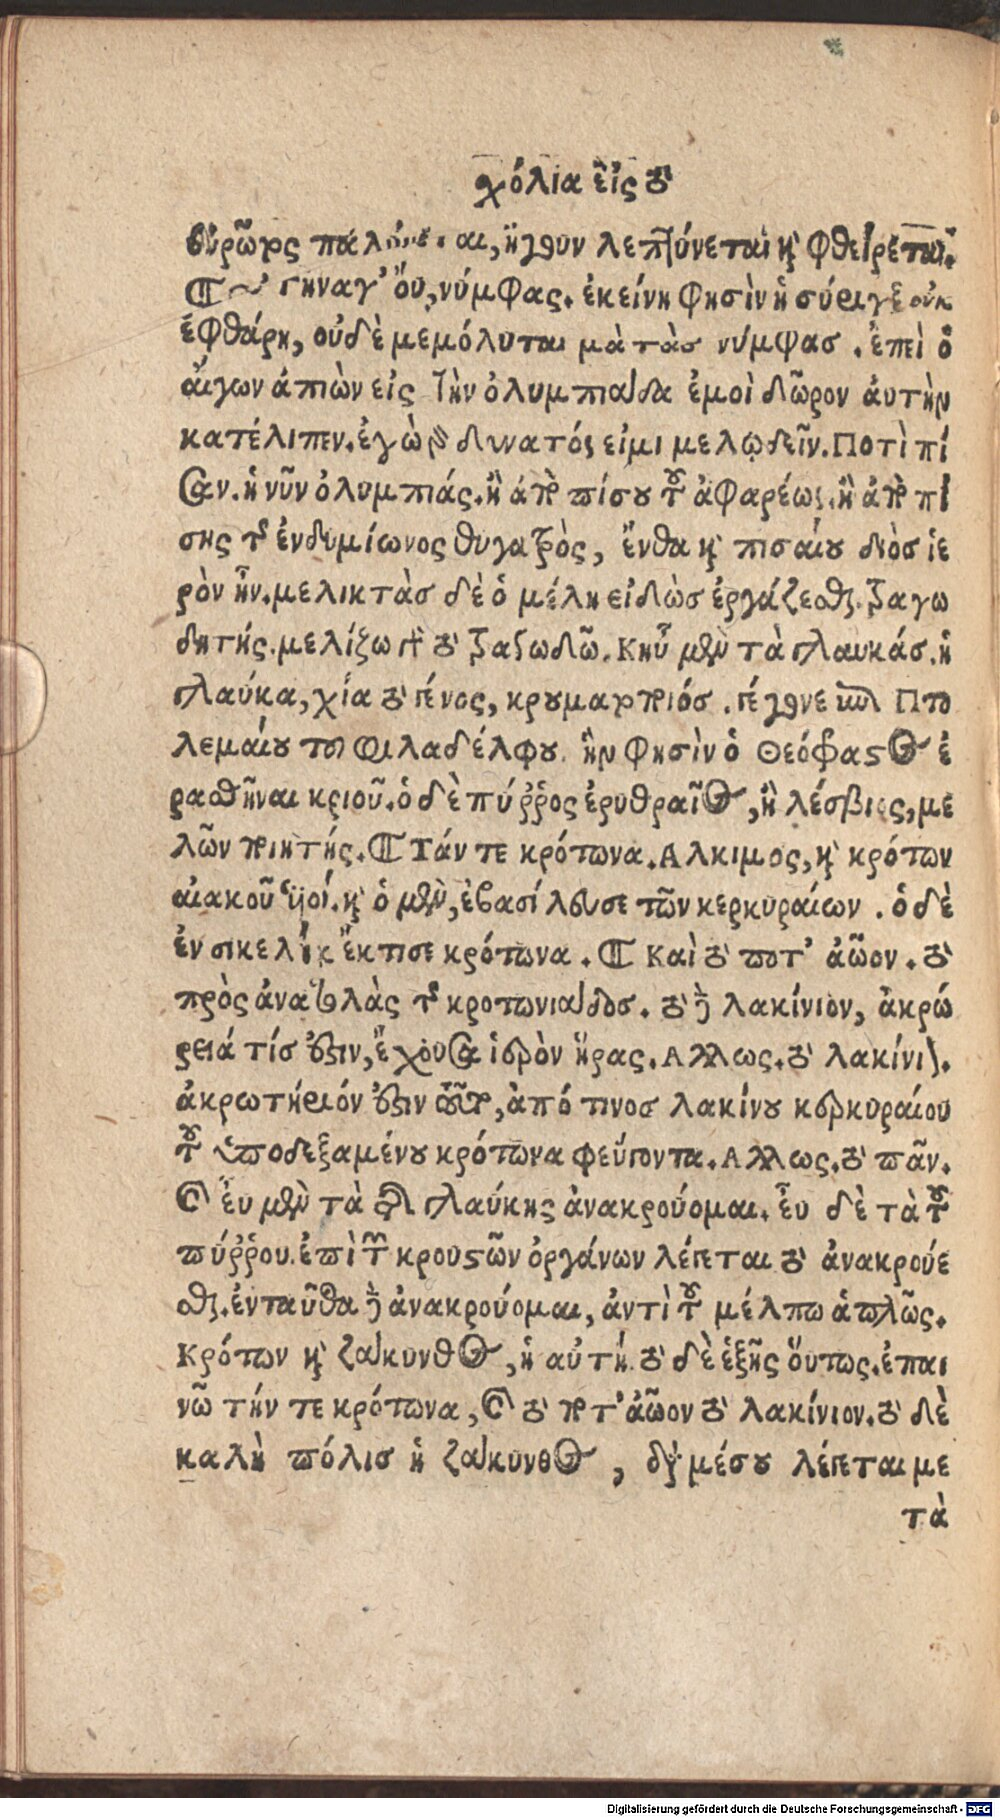 χόλια εἰς τὸ
εὐρῶτος παλύνεται, ἤγουν λεπτύνεται καὶ φθείρεται.
Οὐ τήναγ' οὔ, νύμφας. ἐκείνη φησὶν ἡ σύριγξ οὐκ
ἐφθάρη, οὐδὲ μεμόλυται μὰ τὰσ νύμφασ . ἐπεὶ ὁ
αἴγων ἀπιὼν εἰς τὴν ὀλυμπιάδα ἐμοὶ δῶρον ἀυτὴν
κατέλιπεν. ἐγὼ δὲ δυνατός εἰμι μελῳδεῖν. Ποτὶ πί
σαν. ἡ νῦν ὀλυμπιάς. ἢ ἀπὸ πίσου τοῦ ἀφαρέως. ἢ ἀπὸ πί
σης τῆς ἐνδυμίωνος θυγατρὸς, ἔνθα καὶ πισαίου διὸσ ἱε
ρὸν ἦν. μελικτὰσ δὲ ὁ μέλη εἰδὼσ ἐργάζεσθαι. τραγω
δητής. μελίζω γὰρ τὸ τραγωδῶ. Κηὖ μὲν τὰ γλαυκάσ. ἡ
γλαύκα, χία τὸ γένος, κρουματοποιόσ . γέγονε ἐπὶ Πτο
λεμαίου τοῦ Φιλαδέλφου. ἣν φησὶν ὁ Θεόφραστος ἐ
ρασθῆναι κριοῦ. ὁ δὲ πύῤῥος ἐρυθραῖος, ἢ λέσβιος, με
λῶν ποιητής. Τάν τε κρότωνα. Αλκιμος, καὶ κρότων
αἰακοῦ υἱοί. καὶ ὁ μὲν, ἐβασίλευσε τῶν κερκυραίων . ὁ δὲ
ἐν σικελίᾳ ἔκτισε κρότωνα . Καὶ τὸ ποτ' ἀῶον . τὸ
πρὸς ἀνατολὰς τῆς κροτωνιάδοσ. τὸ δὲ λακίνιον, ἀκρώ
ρειά τίσ ἐστιν, ἔχουσα ἱερὸν ἥρας. Αλλως. τὸ λακίνιον.
ἀκρωτήριόν ἐστιν οὕτω, ἀπό τινοσ λακίνου κερκυραίου
τοῦ ὑποδεξαμένου κρότωνα φεύγοντα. Αλλως. τὸ πᾶν.
καὶ ἐυ μὲν τὰ τῆς γλαύκης ἀνακρούομαι. ἐυ δὲ τὰ τοῦ
πύῤῥου. ἐπὶ τῶν κρουστῶν ὀργάνων λέγεται τὸ ἀνακρούε
σθαι. ἐνταῦθα δὲ ἀνακρούομαι, ἀντὶ τοῦ μέλπω ἁπλῶς.
Κρότων καὶ ζάκυνθος, ἡ αὐτή. τὸ δὲ ἑξῆς ὅυτως. ἐπαι
νῶ τήν τε κρότωνα, καὶ τὸ ποτ' ἀῶον τὸ λακίνιον. τὸ δὲ
καλὴ πόλισ ἡ ζάκυνθος, διὰ μέσου λέγεται με
τὰ
Digitalisierung gefördert durch die Deutsche Forschungsgemeinschaft - DFG